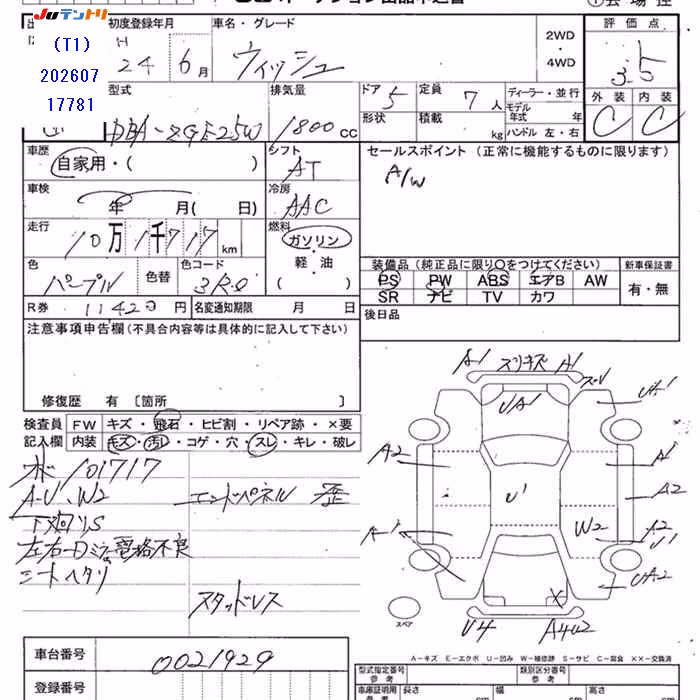 JUテントリ
初度登録年月
車名・グレード
会場控
(T1)
202607
17781
H
24 6月
ウィッシュ
2WD
・
4WD
評価点
3.5
型式
排気量
ドア
5
定員
7人
ディーラー・並行
モデル
年式
年
外装
内装
C
C
DBA-ZGE25W
1800cc
形状
積載
kg
ハンドル 左・右
車歴
自家用・( )
シフト
AT
セールスポイント (正常に機能するものに限ります)
A/W
車検
年 月( 日)
冷房
AAC
走行
10万1千717km
燃料
ガソリン
・
軽・油
( )
色
パープル
色替
色コード
3R0
装備品(純正品に限り○をつけてください)
新車保証書
PS PW ABS エアB AW
SR ナビ TV カワ
有・無
R券 11420円
名変通知期限 月 日
後日品
注意事項申告欄(不具合内容等は具体的に記入して下さい)
修復歴 有 〔箇所
検査員
記入欄
FW キズ・飛石・ヒビ割・リペア跡・×要
内装 キズ・汚レ・コゲ・穴・スレ・キレ・破レ
101717
A-U、W2
エンドパネル 歪
下廻りS
左右-Dミラー電格不良
シートヘタリ
スタッドレス
A1 スリキズ A1
UA1
UA1
A2
A1
U1
A2
A-1
W2
A2
U1
UA2
X
U4
A4U2
スペア
A-キズ E-エクボ U-凹み W-補修跡 S-サビ C-腐食 ××-交換済
車台番号
0021929
登録番号
型式指定番号
参考
類別区分番号
参考
車庫証明用
参考
長さ
cm
幅
cm
高さ
cm